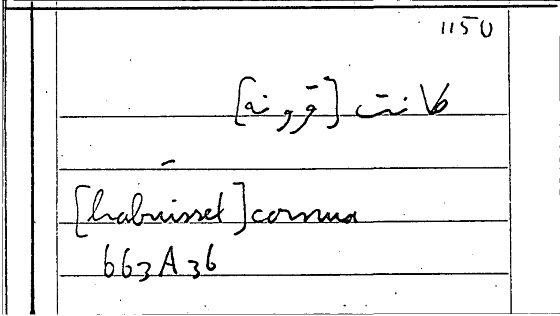 1150
كانت [قرونه]
[habuisset] cornua
663A36